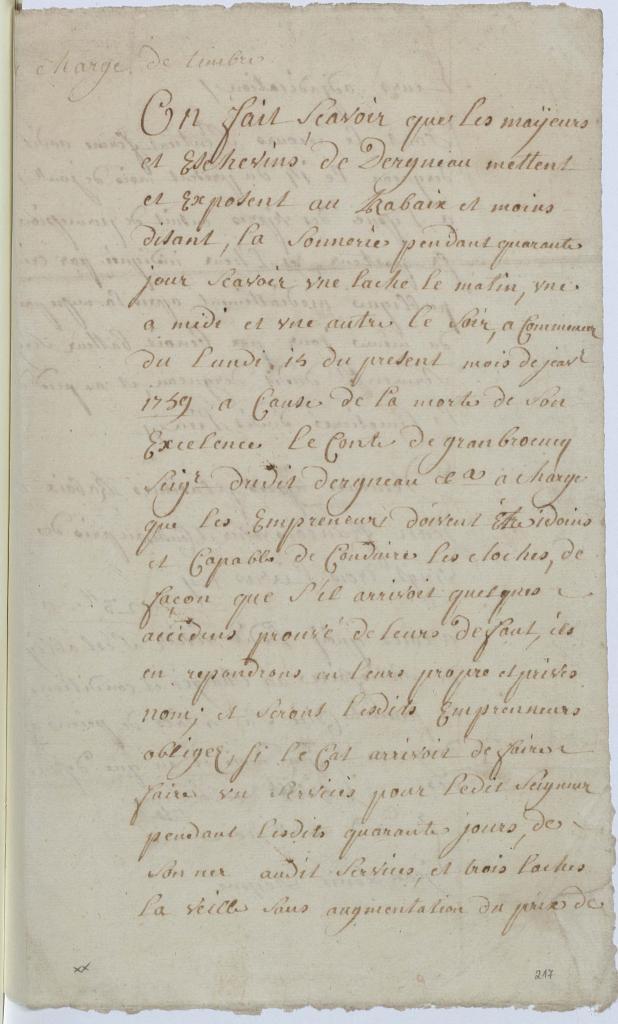 charge de timbre
On fait scavoir que les maÿeurs
et Eschevins de Dergneau mettent
et Exposent au Rabaix et moins
disant, la sonnerie pendant quarante
jour scavoir vne lache le matin, vne
a midi et vne autre le soir, a Commencer
du lundi 15 du present mois de janvr
1759 a Cause de la morte de son
Excelence le Conte de
Seigr dudit dergneau &a a charge
que les Empreneurs doivent être idoins
et Capable de Conduire les cloches, de
façon que s'il arrivoit quelques
accidens prouvé de leurs deffaut, ils
en repondrons en leurs propre et prives
nom; et seront lesdits Emprenneurs
obligez, si le Cas arrivoit de faire
faire vn services pour ledit Seigneur
pendant lesdits quarante jours, de
sonner audit services, et trois laches
la veille sans augmentation du prix de
xx
217